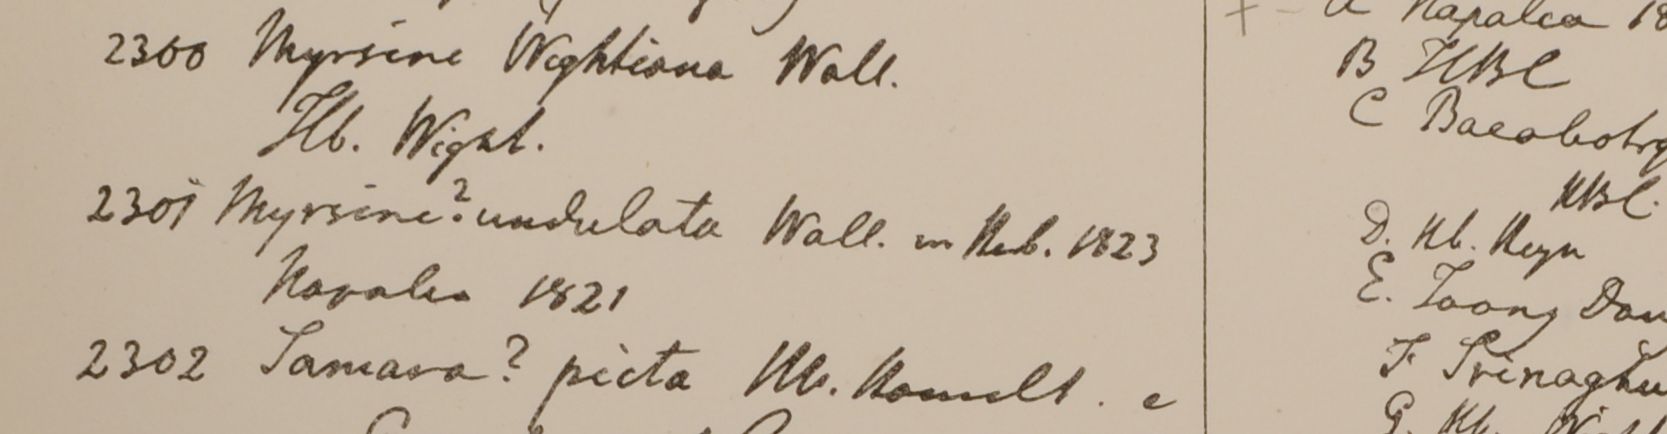 2300 Myrsine Wightiana Wall.
Hb. Wight.
2301 Myrsine? undulata Wall. in Herb. 1823
Napalia 1821
2302 Samara? picta Hb. Hamilt. e
Napalia 18
B HBC
C Baeobotry
HBC.
D. Hb. Heyn
E. Toong Dou
F Srinaghu
G. Hb. Wight